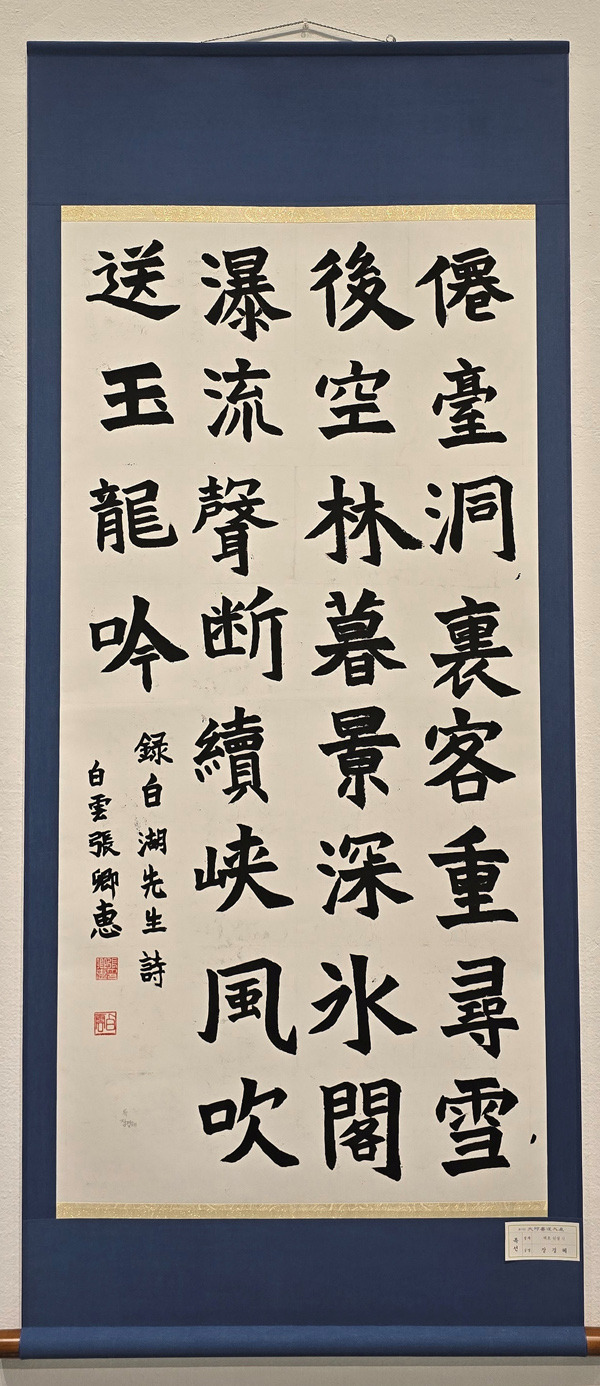 僊臺洞裏客重尋雪
後空林暮景深氷閣
瀑流聲断續峡風吹
送玉龍吟
録白湖先生詩
白雲張卿恵